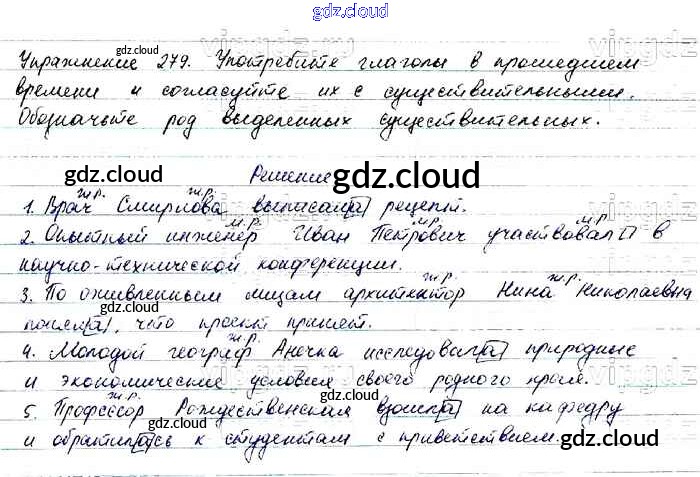 gdz.cloud
Упражнение 279. Употребите глаголы в прошедшем
gdz.cloud
времени и согласуйте их с существительными.
Обозначьте род выделенных существительных.
gdz.cloud
Решение
gdz.cloud
ж.р. ж.р.
1. Врач Смирнова выписал[а] рецепт.
м.р. м.р. м.р.
2. Опытный инженер Иван Петрович участвовал□ в
научно-технической конференции. gdz.cloud
ж.р. ж.р.
3. По оживленным лицам архитектор Нина Николаевна
gdz.cloud
понял[а], что проект примет.
ж.р.
4. Молодой географ Анечка исследовал[а] природные
и экономические условия своего родного края.
ж.р. gdz.cloud gdz.cloud
5. Профессор Рождественская взошл[а] на кафедру
и обратил[а]сь к студентам с приветствием. gdz.cloud